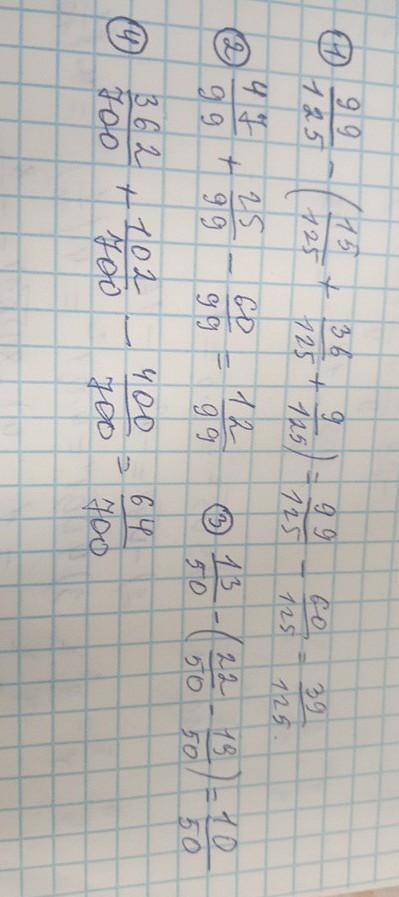 ① 99/125 - (15/125 + 36/125 + 9/125) = 99/125 - 60/125 = 39/125.
② 47/99 + 25/99 - 60/99 = 12/99
③ 13/50 - (22/50 - 19/50) = 10/50
④ 362/700 + 102/700 - 400/700 = 64/700